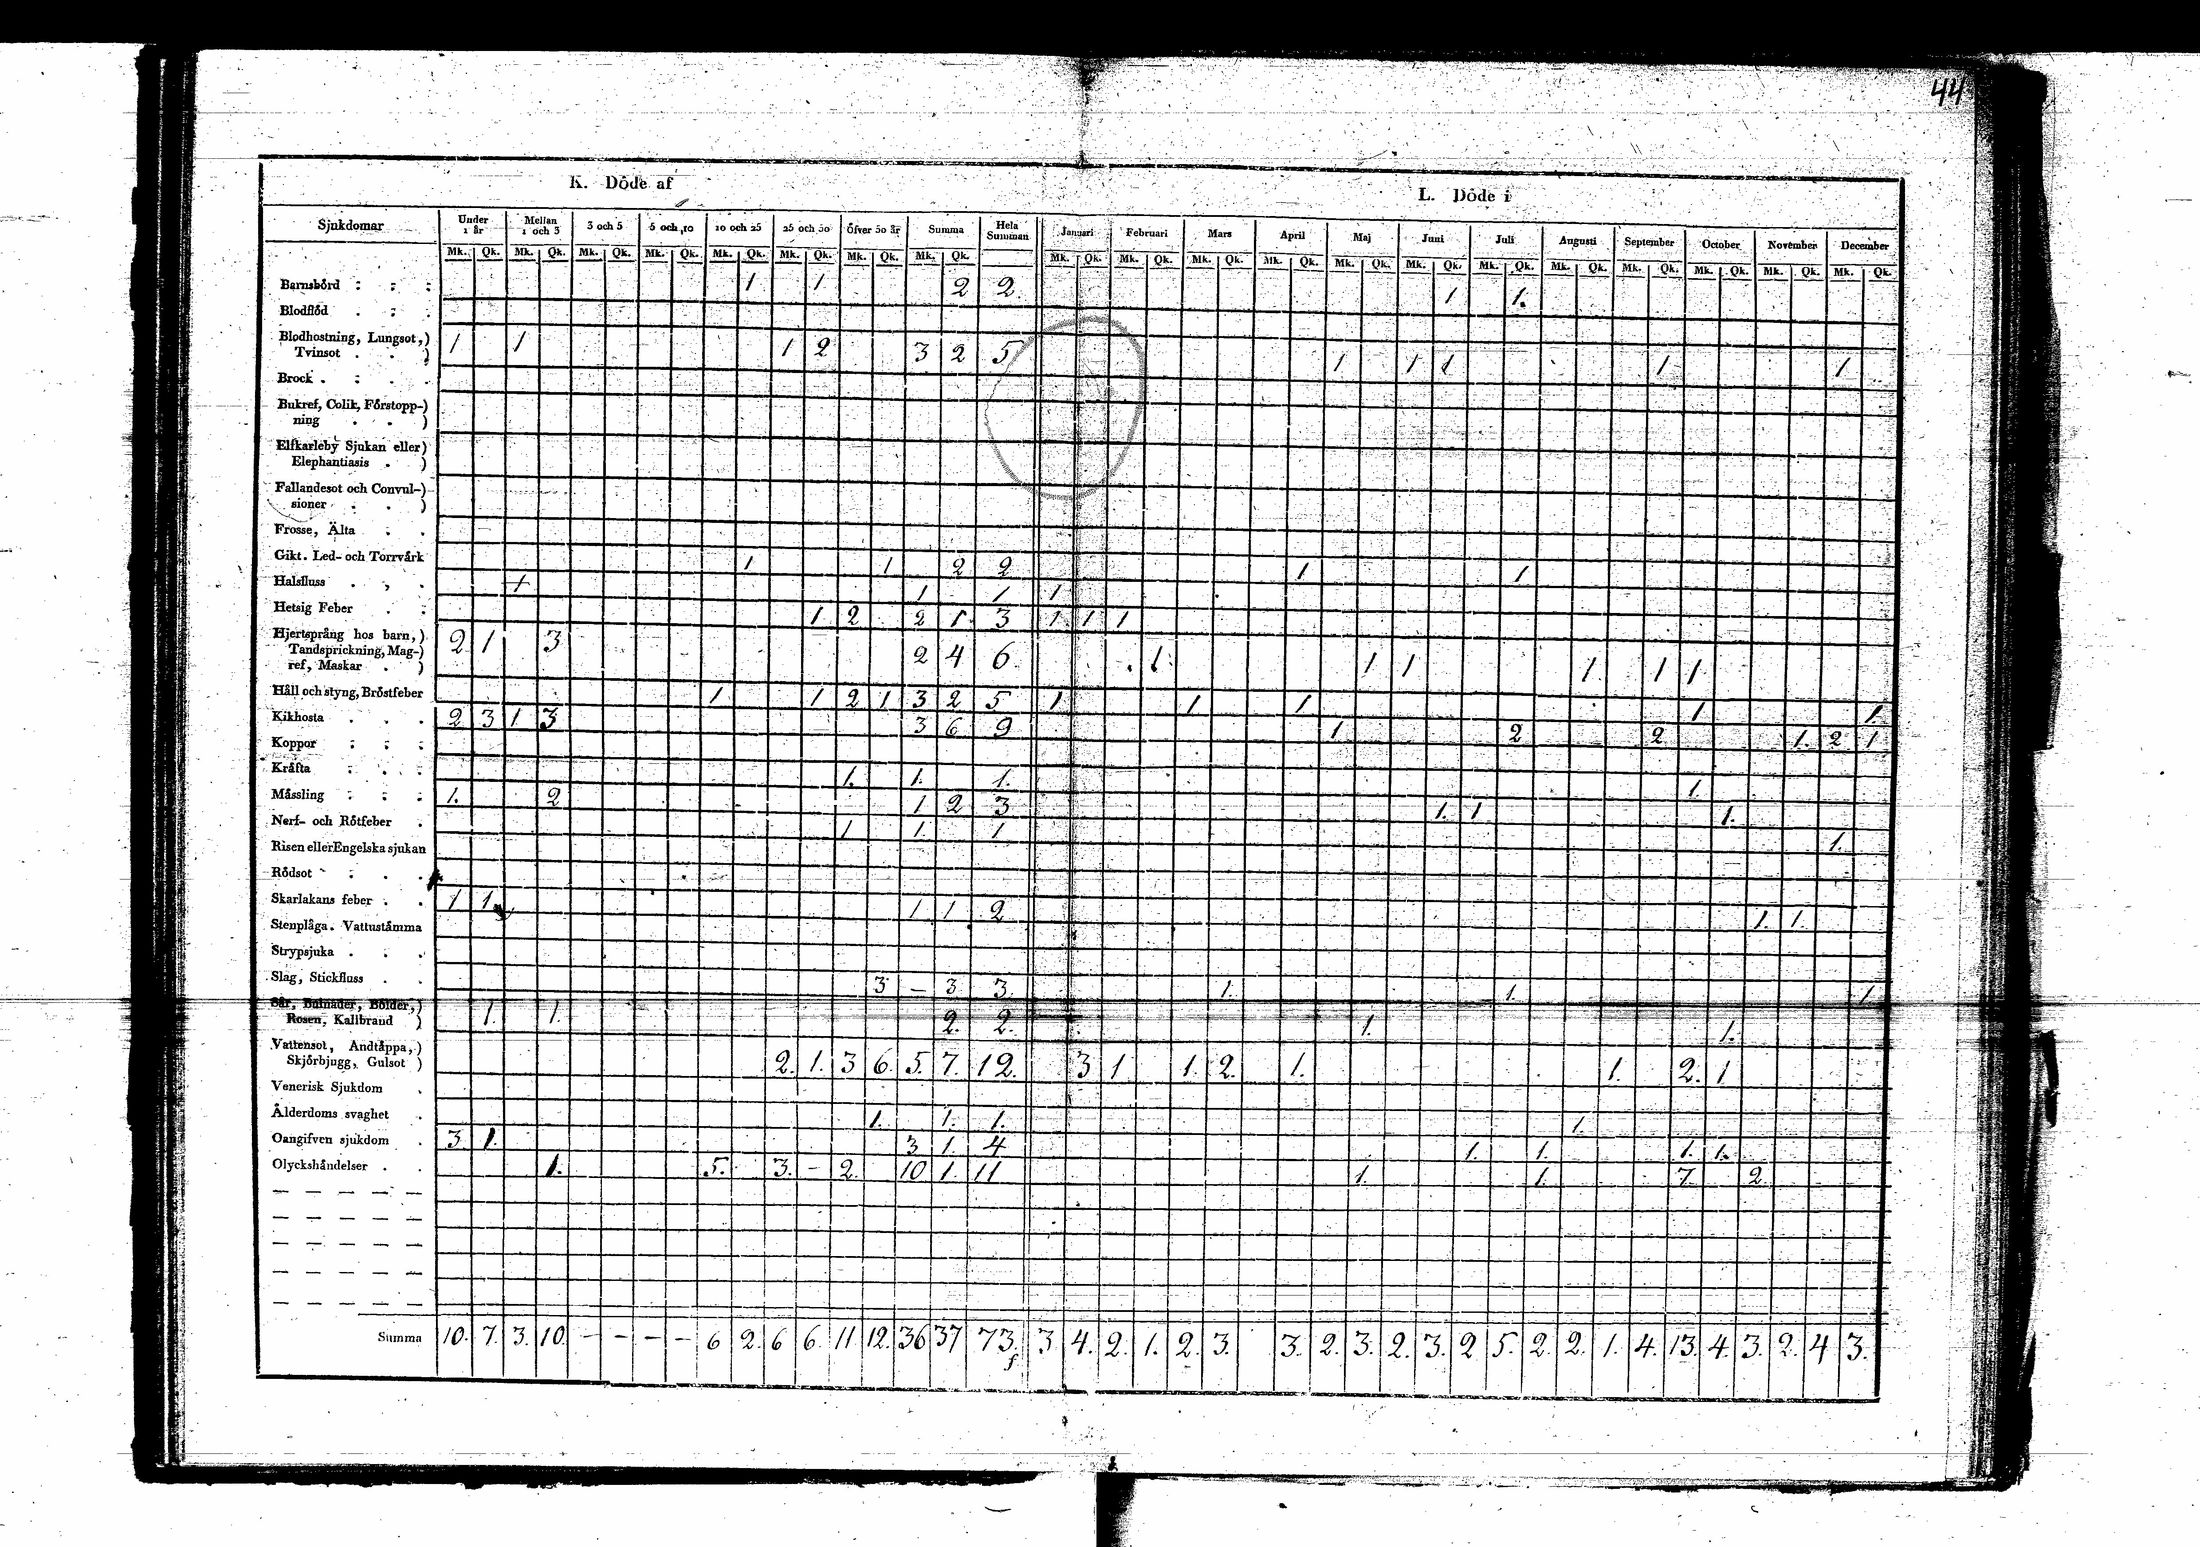 44
K. Döde af
L. Döde i
Sjukdomar Under 1 år Mellan 1 och 3 3 och 5 5 och 10 10 och 25 25 och 50 Öfver 50 år Summa Hela Summan Januari Februari Mars April Maj Juni Juli Augusti September October November December
Mk. Qk. Mk. Qk. Mk. Qk. Mk. Qk. Mk. Qk. Mk. Qk. Mk. Qk. Mk. Qk. Mk. Qk. Mk. Qk. Mk. Qk. Mk. Qk. Mk. Qk. Mk. Qk. Mk. Qk. Mk. Qk. Mk. Qk. Mk. Qk. Mk. Qk. Mk. Qk.
Barnsbörd 1 1 2 2 1 1.
Blodflöd
Blodhostning, Lungsot,)
Tvinsot 1 1 1 2 3 2 5 1 1 1 1 1
Brock
Bukref, Colik, Förstopp-)
ning )
Elfkarleby Sjukan eller)
Elephantiasis )
Fallandesot och Convul-)
sioner )
Frosse, Älta
Gikt. Led- och Torrvärk 1 1 2 2 1 1
Halsfluss 1 1 1 1
Hetsig Feber 1 2 2 1. 3 1 1 1
Hjertsprång hos barn,)
Tandsprickning, Mag-)
ref, Maskar ) 2 1 3 2 4 6 1 1 1 1 1 1
Håll och styng, Bröstfeber 1 1 2 1 3 2 5 1 1 1 1 1.
Kikhosta 2 3 1 3 3 6 9 1 2 2 1. 2 1
Koppor
Kräfta 1. 1. 1. 1.
Mässling 1. 2 1 2 3 1. 1 1.
Nerf- och Rötfeber 1 1. 1 1.
Risen eller Engelska sjukan
Rödsot
Skarlakans feber 1 1 1 1 2 1. 1.
Stenplåga. Vattustämma
Strypsjuka
Slag, Stickfluss 3 – 3 3. 1. 1. 1.
Sår, Bulnader, Bölder,)
Rosen, Kallbrand ) 1. 1. 2. 2. 1. 1.
Vattensot, Andtäppa,)
Skjörbjugg, Gulsot ) 2. 1. 3 6. 5. 7. 12. 3 1 1. 2. 1. 1. 2. 1
Venerisk Sjukdom
Ålderdoms svaghet 1. 1. 1. 1.
Oangifven sjukdom 3. 1. 3 1. 4 1. 1. 1. 1.
Olyckshändelser 1. 5. 3. – 2. 10 1. 11 1. 1. 7. 2.
Summa 10. 7. 3. 10. – – – – 6 2. 6 6. 11 12. 36 37 73. 3 4. 2. 1. 2. 3. 3. 2. 3. 2. 3. 2 5. 2. 2. 1. 4. 13. 4. 3. 2. 4 3.